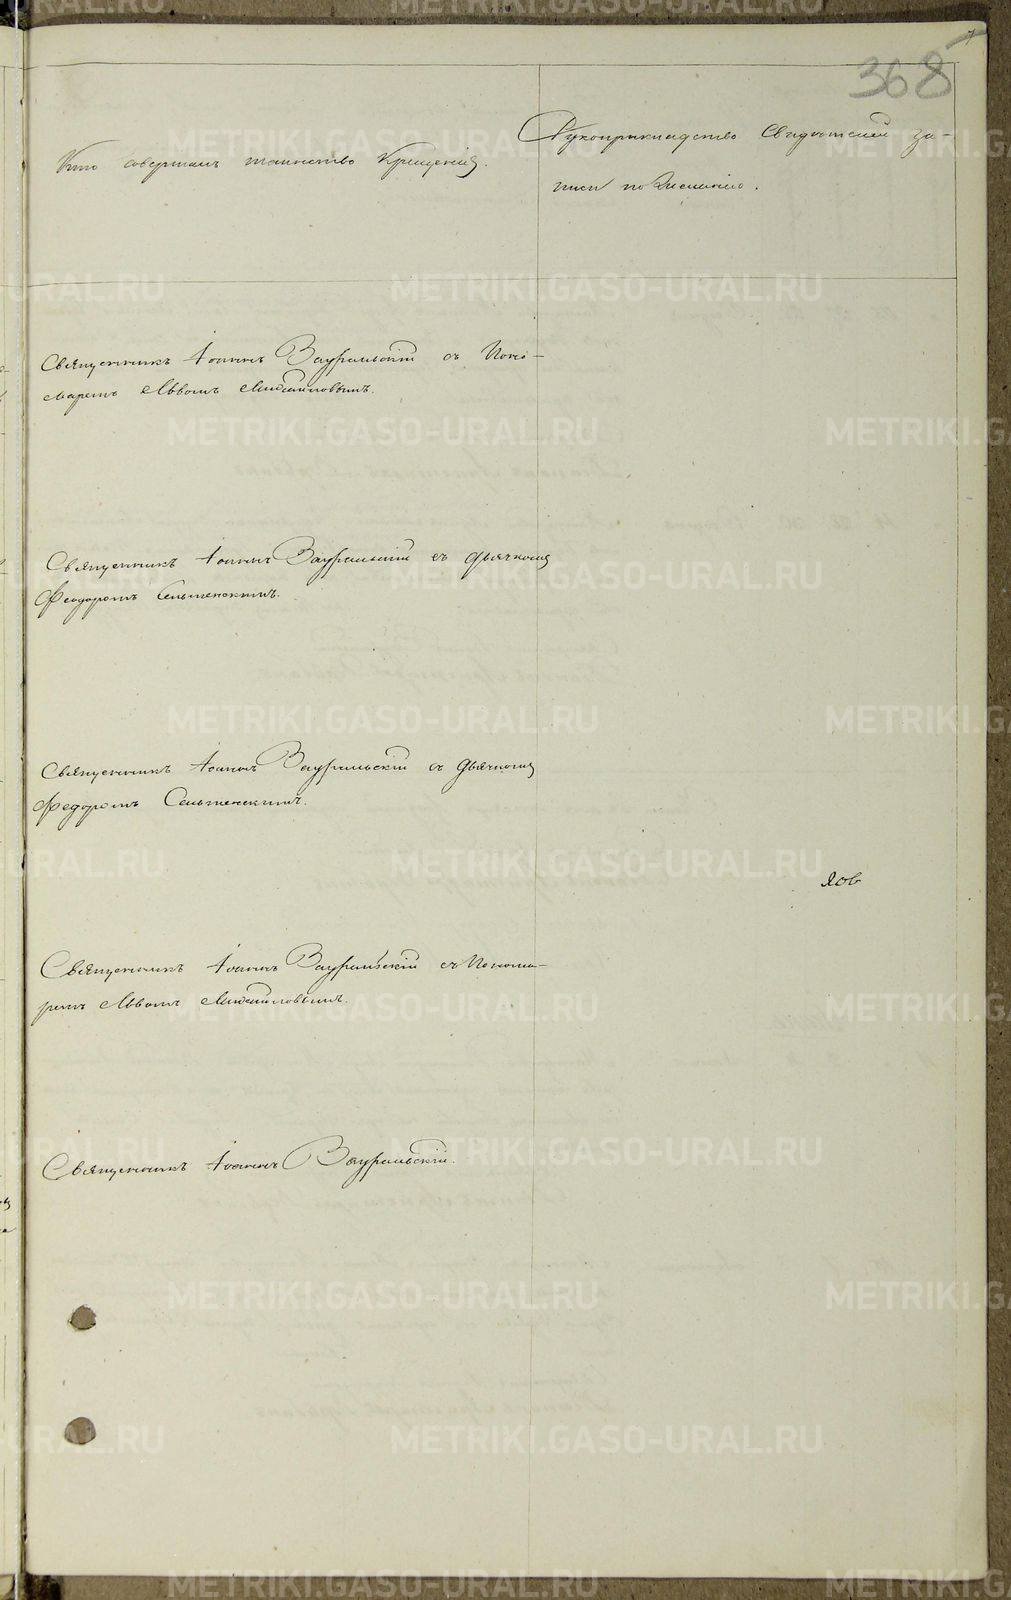 368
Кто совершалъ таинство Крещенія.
Рукоприкладство Свидѣтелей за-
писи по желанію.
Священникъ Іоаннъ Зауральскій съ Поно-
маремъ Львомъ Михайловымъ.
Священникъ Іоаннъ Зауральскій съ Дьячкомъ
Феодоромъ Сельменскимъ.
Священникъ Іоаннъ Зауральскій съ Дьячкомъ
Федоромъ Сельменскимъ.
Священникъ Іоаннъ Зауральскій съ Понома-
ремъ Львомъ Михайловымъ.
Священникъ Іоаннъ Зауральскій.
METRIKI.GASO-URAL.RU